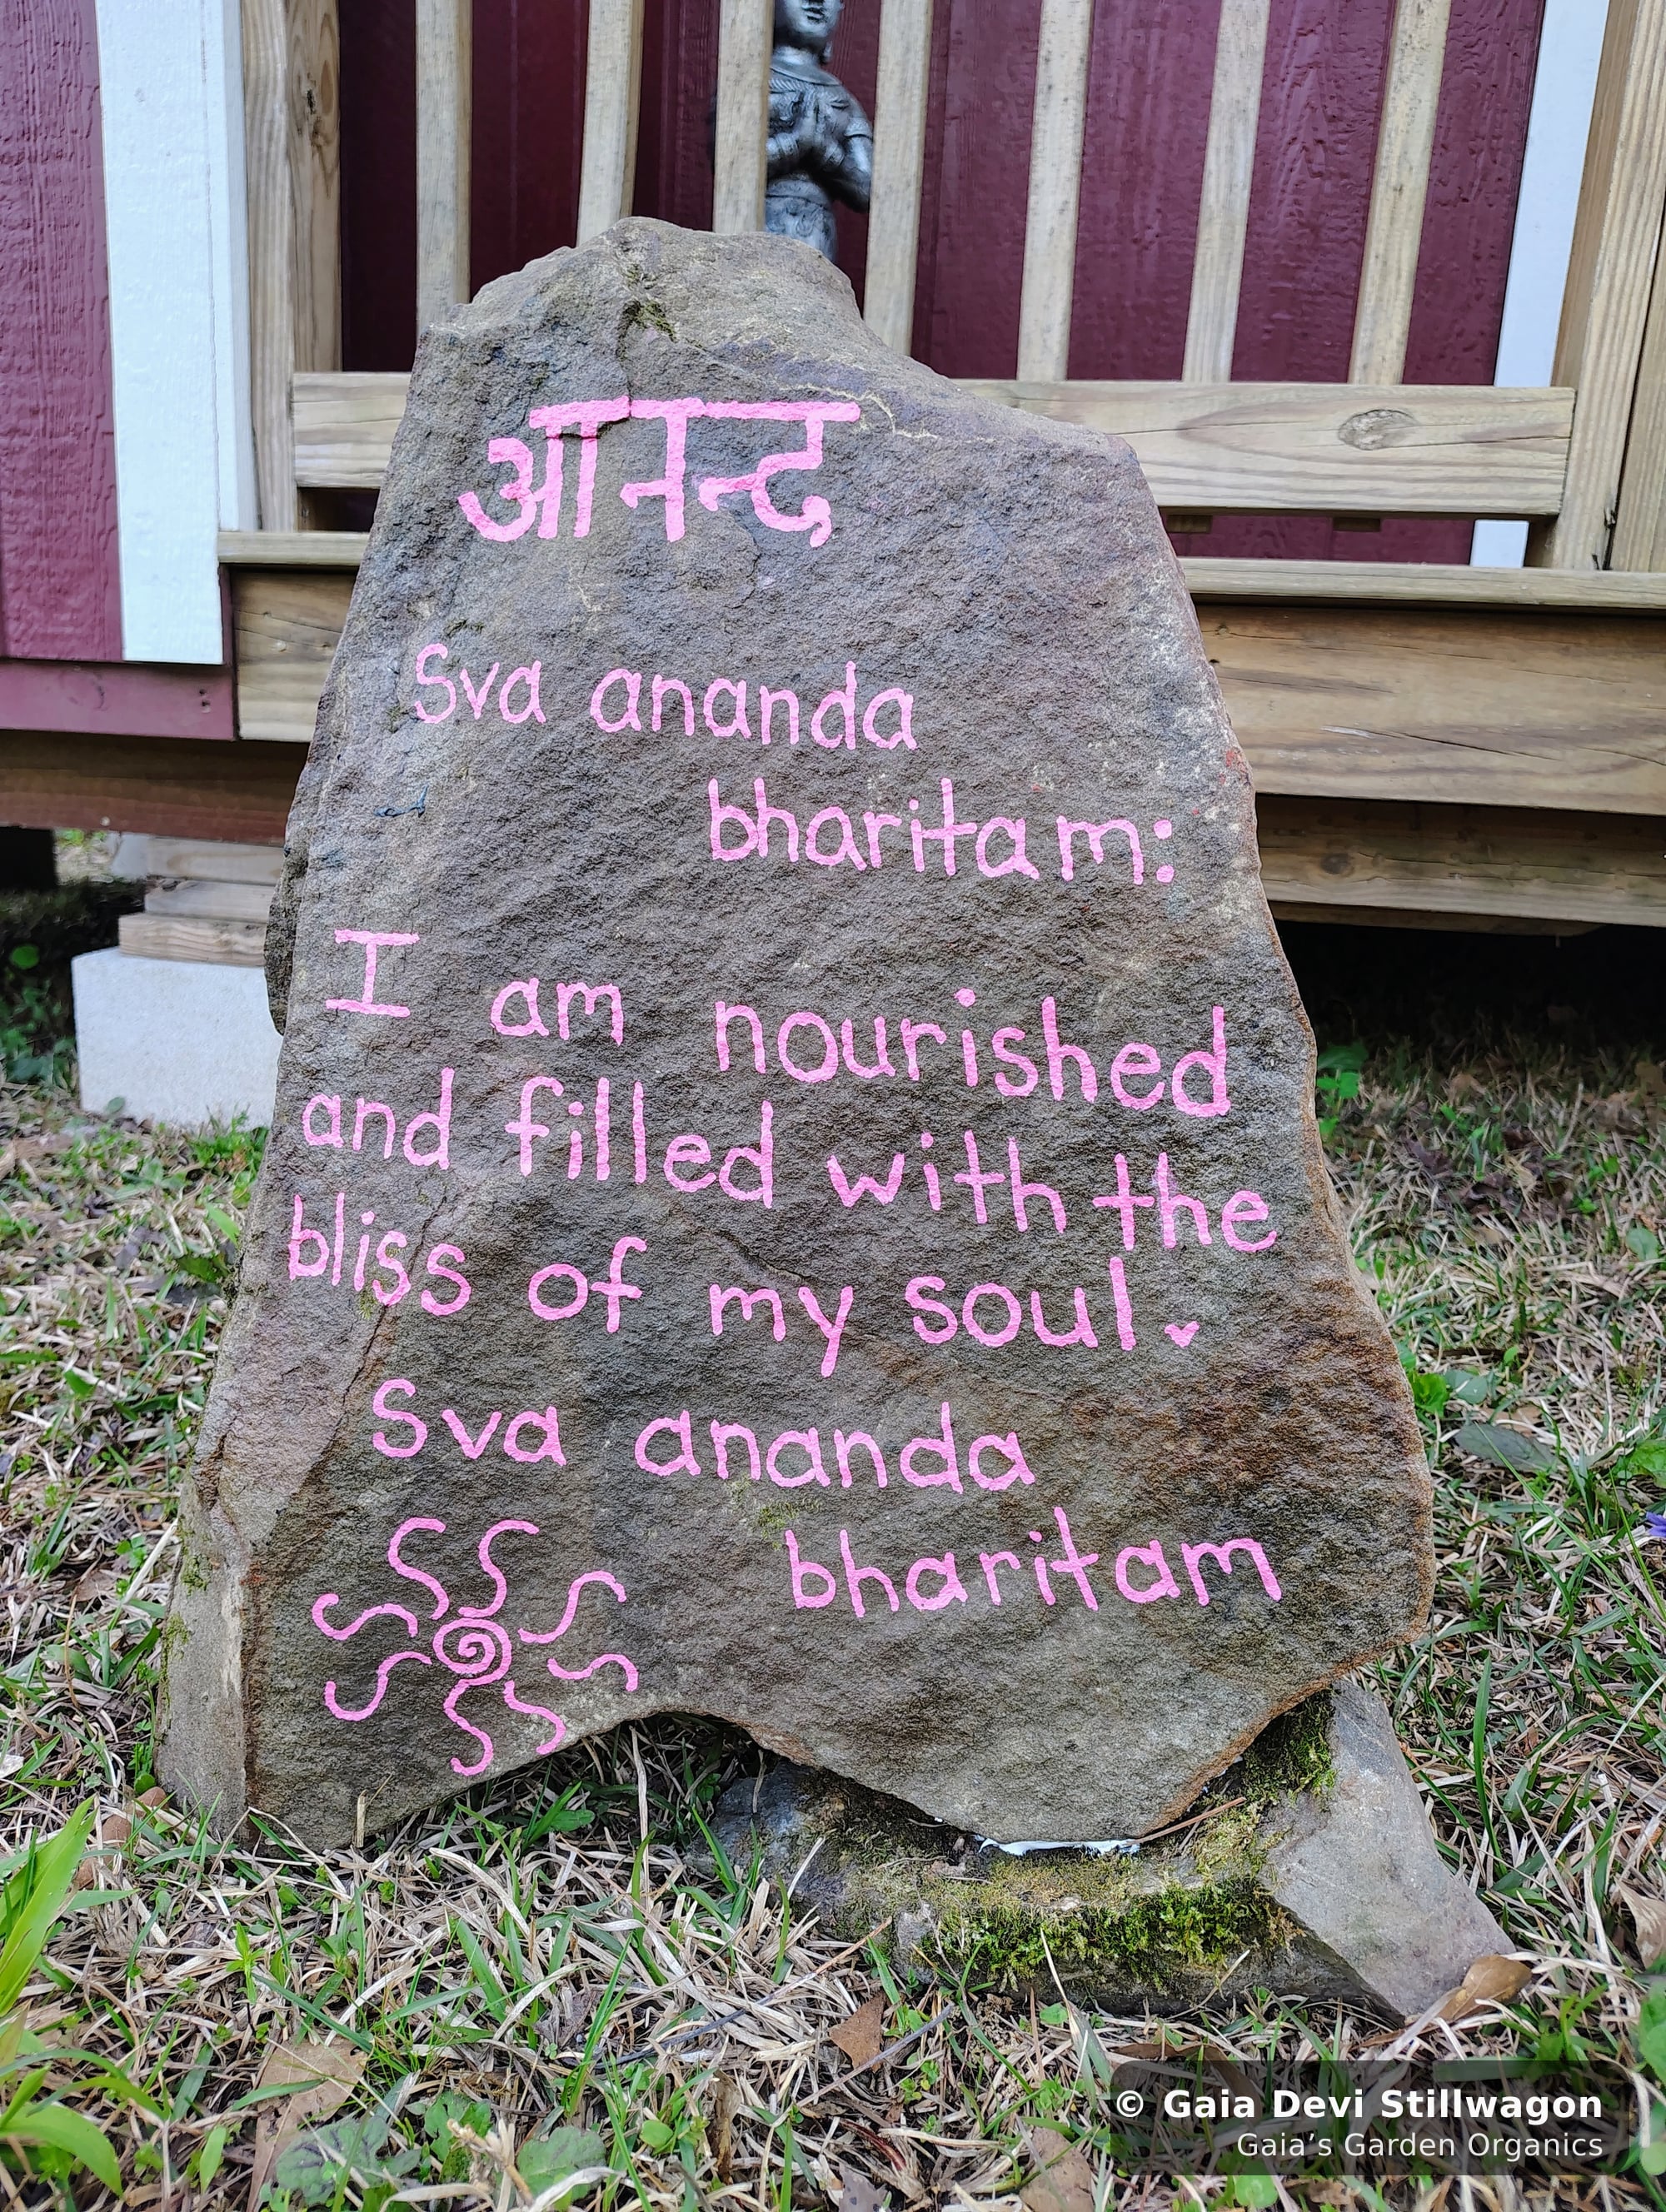 आनन्द
Sva ananda
bharitam:
I am nourished
and filled with the
bliss of my soul.
Sva ananda
bharitam
© Gaia Devi Stillwagon
Gaia’s Garden Organics